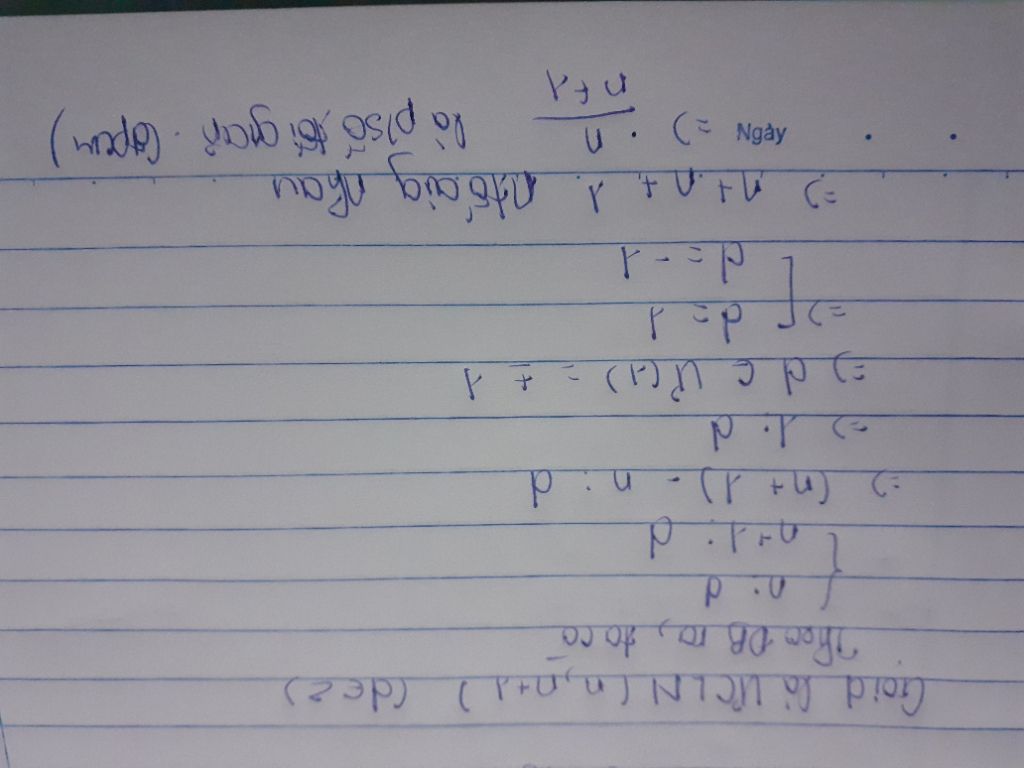 Gọi d là ƯCLN (n, n+1) (d∈Z)
Theo ĐB ra, ta có
{ n ⋮ d
n+1 ⋮ d
=> (n+1) - n ⋮ d
=> 1 ⋮ d
=> d ∈ Ư(1) = ±1
=> [ d = 1
d = -1
=> n + n + 1 ntố cùng nhau
=> n/n+1 là p/số tối giản (đpcm)
Ngày